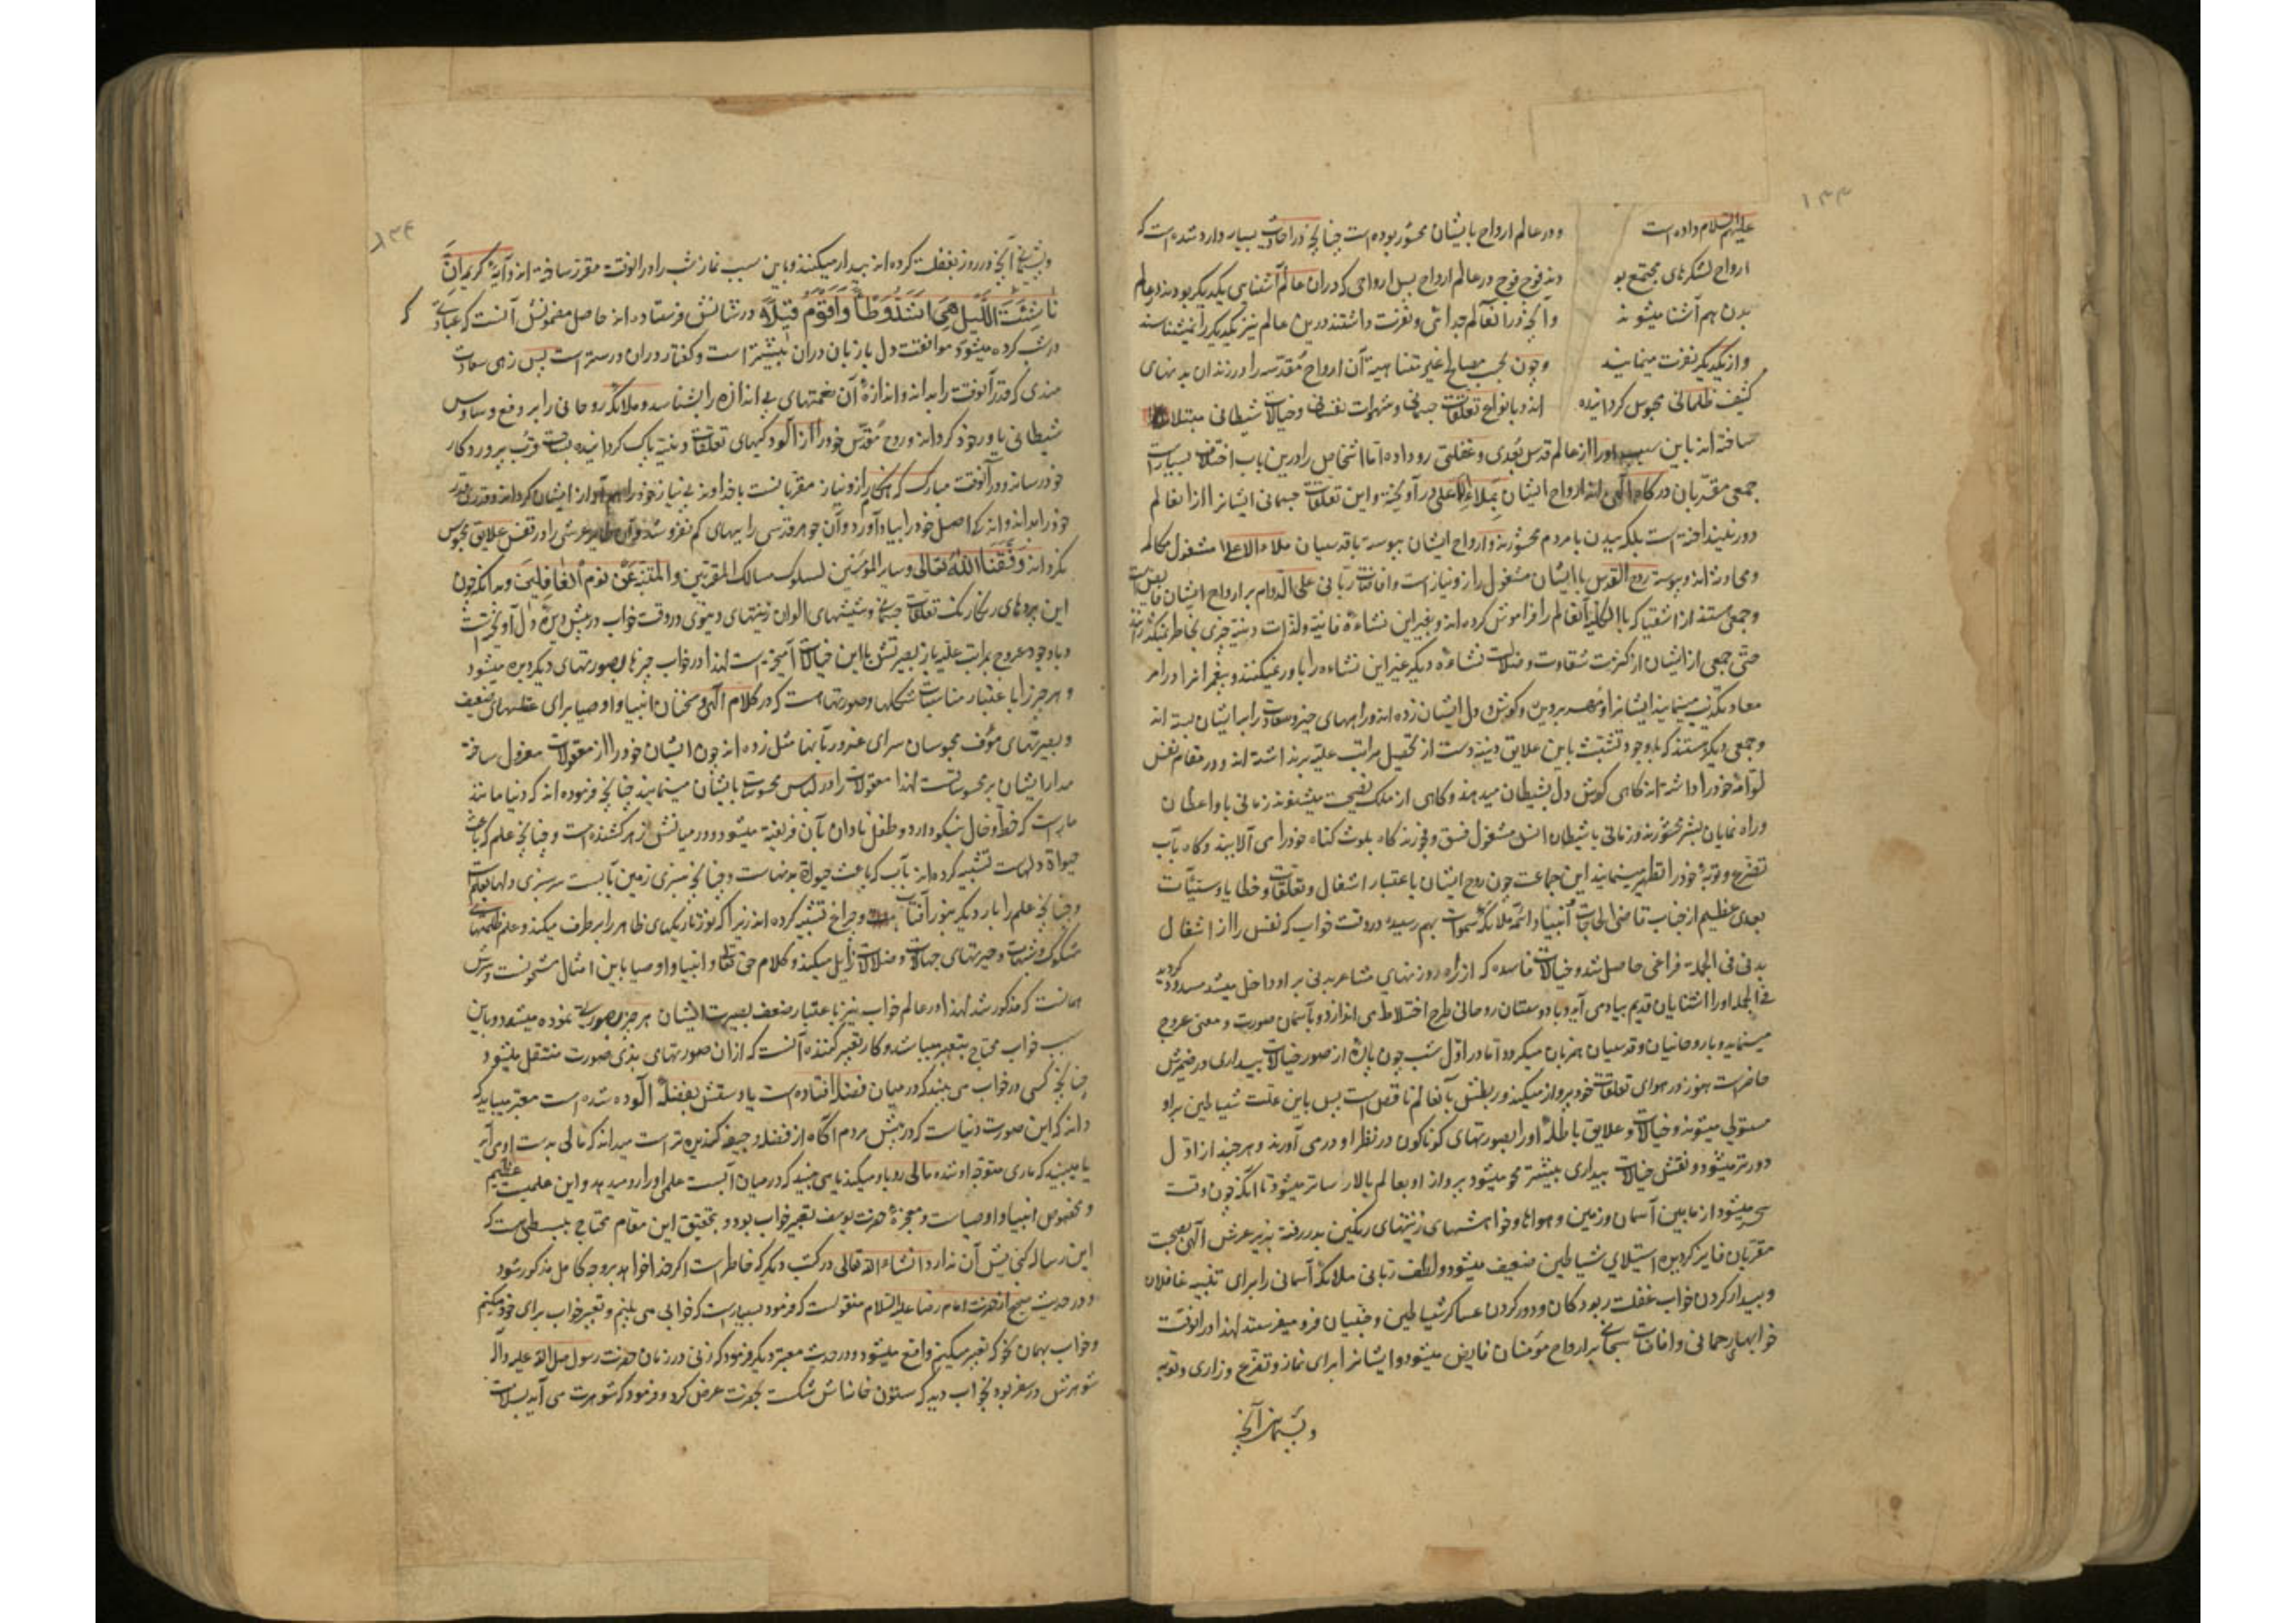 ۱۳۳
علیهم السلام داده است و در عالم ارواح با ایشان محشور بوده است چنانچه در احادیث بسیار وارد شده است که
ارواح لشکرهای مجتمع بو دند فوج فوج در عالم ارواح پس ارواحی که در آن عالم آشنایی یکدیگر بودند در عالم
بدن هم آشنا میشوند و آنچه در آنعالم جدائی و نفرت داشتند درین عالم نیز یکدیگر را نمیشناسند
و از یکدیگر نفرت مینمایند و چون بحسب مصالح غیر متناهیه آن ارواح مقدّسه را در زندان بدنهای
کثیف ظلمانی محبوس کردانیده اند و بانواع تعلقات جسمانی و شهوات نفسانی و خیالات شیطانی مبتلا
ساخته اند باین سبب او را از عالم قدس بُعدی و غفلتی رو داده اما اشخاص را درین باب اختلاف بسیار است
جمعی مقرّبان درگاه الهی اند ارواح ایشان بملاء اعلی در آویخته و این تعلقات جسمانی ایشانرا از آنعالم
دور نینداخته است بلکه ببدن با مردم محشورند و ارواح ایشان پیوسته با قدسیان ملاء الاعلا مشغول مکالمه
و محادثه اند و پیوسته روح القدس با ایشان مشغول راز و نیاز است و افاضات ربانی علی الدوام بر ارواح ایشان فایض است
و جمعی هستند از اشقیا که بالکلیه آنعالم را فراموش کرده اند و بغیر این نشاءهٔ فانیه و لذّات دنیه چیزی بخاطر نمیگذرانند
حتّی جمعی از ایشان از کثرت شقاوت و ضلالت نشاءهٔ دیگر غیر این نشاءه را باور نمیکنند و پیغمبرانرا در امر
معاد تکذیب مینمایند ایشانرا مهر بر دیده و گوش و دل ایشان زده اند و راههای خیر و سعادت را بر ایشان بسته اند
و جمعی دیگر هستند که با وجود تشبّث باین علایق دنیه دست از تحصیل مراتب علیه برنداشته اند و در مقام نفس
لوّامه خود را داشته اند کاهی گوش دل بشیطان میدهند و کاهی از ملک نصیحت میشنوند زمانی با واعظان
و راه نمایان بشر محشورند و زمانی با شیطان انس مشغول فسق و فجورند کاه بلوث کناه خود را می آلایند و کاه بآب
تضرّع و توبه خود را تطهیر مینمایند این جماعت چون روح ایشان باعتبار اشغال و تعلقات و خطایا و سیّئات
بعدی عظیم از جناب قاضی الحاجات و انبیا و ائمّه و ملائکه سموات بهم رسیده در وقت خواب که نفس را از اشغال
بدنی فی الجمله فراغی حاصل شد و خیالات فاسده که از راه روزنهای مشاعر بدنی بر او داخل میشد مسدود کردید
فی الجمله او را آشنایان قدیم بیاد می آید و با دوستان روحانی طرح اختلاط می اندازد و بآسمان صورت و معنی عروج
مینماید و با روحانیان و قدسیان همزبان میکردد اما در اوّل شب چون پارهٔ از صور خیالات بیداری در ضمیرش
حاضر است هنوز در هوای تعلقات خود پرواز میکند و ربطش بآنعالم ناقص است پس باین علت شیاطین بر او
مستولی میشوند و خیالات و علایق باطله او را بصورتهای کوناکون در نظر او در می آورند و هر چند از اوّل
دورتر میشود و نقش خیالات بیداری بیشتر محو میشود پرواز او بعالم بالا رساتر میشود تا آنگه چون وقت
سحر میشود از ما بین آسمان و زمین و هواها و خواهشهای زینتهای رنگین بدر رفته بزیر عرش الهی بصحبت
مقرّبان فایز کردیده استیلای شیاطین ضعیف میشود و لطف ربّانی ملائکه آسمانی را برای تنبیه غافلان
و بیدار کردن خواب غفلت ربودگان و دور کردن عساکر شیاطین و جنیان فرو میفرستد لهذا در آنوقت
خوابهای رحمانی و افاضات سبحانی بر ارواح مؤمنان فایض میشود و ایشانرا برای نماز و تضرّع و زاری و توبه
و پشیمانی آنچه
۱۳۴
و پشیمانی آنچه در روز بغفلت کرده اند بیدار میکنند و باین سبب نماز شب را در آنوقت مقرّر ساخته اند و آیهٔ کریمه اِنَّ
نَاشِئَةَ اللَّیْلِ هِیَ اَشَدُّ وَطْأً وَاَقْوَمُ قِیلاً در شانش فرستاده اند حاصل مضمونش آنست که عبادتی که
در شب کرده میشود موافقت دل با زبان در آن بیشتر است و گفتار در آن درستر است پس زهی سعادت
مندی که قدر آنوقت را بداند و اندازهٔ آن نعمتهای بی اندازه را بشناسد و ملائکه روحانی را بر دفع وساوس
شیطانی یاور خود کرداند و روح مقدّس خود را از آلودکیهای تعلقات دنیّه پاک کردانیده بساحت قرب پروردکار
خود رساند و در آنوقت مبارک که هنگام راز و نیاز مقرّبانست با خداوند بی نیاز خود را هم آواز ایشان کرداند و قدری قدر
خود را بداند و اندکی اصل خود را بیاد آورد و آن جوهر قدسی را ببهای کم نفروشد و آن طایر عرشی را در قفس علایق محبوس
نکرداند وَفَّقَنَا اللهُ تَعَالی و سایر المؤمنین لسلوک مسالک المقرّبین و المتنبّه عن نوم الغافلین و بدانکه چون
این پردهای رنگارنگ تعلقات جسمانی و شیشهای الوان زینتهای دنیوی در وقت خواب در پیش دیدهٔ دل آویخته است
و با وجود عروج بمراتب علیه باز بصیرتش با این خیالات آمیخته است لهذا در خواب چیزها بصورتهای دیگر دیده میشود
و هر چیز را باعتبار مناسبات شکلها و صورتهاست که در کلام الهی و سخنان انبیا و اوصیا برای عقلهای ضعیف
و بصیرتهای مؤف محبوسان سرای غرور بآنها مثل زده اند چون ایشان خود را از معقولات معزول ساخته
مدار ایشان بر محسوساتست لهذا معقولات را در لباس محسوسات بایشان مینمایند چنانچه فرموده اند که دنیا مانند
ماریست که خطّ و خال نیکو دارد و طفل نادان بآن فریفته میشود و در میانش زهر کشنده است و چنانچه علم که باعث
حیوة دلهاست تشبیه کرده اند بآب که باعث حیوة بدنهاست و چنانچه سبزی زمین بآبست سرسبزی دلها بعلم است
و چنانچه علم را بار دیگر بنور آفتاب و چراغ تشبیه کرده اند زیرا که نور تاریکیهای ظاهر را برطرف میکند و علم ظلمتهای
شکوک و شبهات و حیرتهای جهالات و ضلالات زایل میکند و کلام حق تعالی و انبیا و اوصیا باین امثال مشحونست و سرّش
همانست که مذکور شد لهذا در عالم خواب نیز باعتبار ضعف بصیرت ایشان هر چیز بصورتی نموده میشود و باین
سبب خواب محتاج بتعبیر میباشد و کار تعبیر کننده آنست که از آن صورتهای بذی صورت منتقل میشود
چنانچه کسی در خواب می بیند که در میان فضله افتاده است یا دستش بفضله آلوده شده است معبّر میباید که
داند که این صورت دنیاست که در پیش مردم آگاه از فضله و جیفه گندیده تر است میداند که مالی بدست او می آید
یا میبیند که ماری متوجّه او شده مالی رو باو میکند یا می بیند که در میان آبست علمی او را رو میدهد و این علمیست عظیم
و مخصوص انبیا و اوصیاست و معجزهٔ حضرت یوسف تعبیر خواب بود و تحقیق این مقام محتاج ببسطی هست که
این رساله گنجایش آن ندارد انشاء الله تعالی در کتب دیگر که خاطر است اکر خدا خواهد بر وجه کامل مذکور شود
و در حدیث صحیح از حضرت امام رضا علیه السلام منقولست که فرمود بسیار است که خوابی می بینم و تعبیر خواب برای خود میکنم
و خواب بهمان نحو که تعبیر میکنم واقع میشود و در حدیث معتبر دیگر فرمود که زنی در زمان حضرت رسول صلی الله علیه وآله
شوهرش در سفر بود بخواب دید که ستون خانه اش شکست بحضرت عرض کرد و فرمود که شوهرت می آید بسلامت